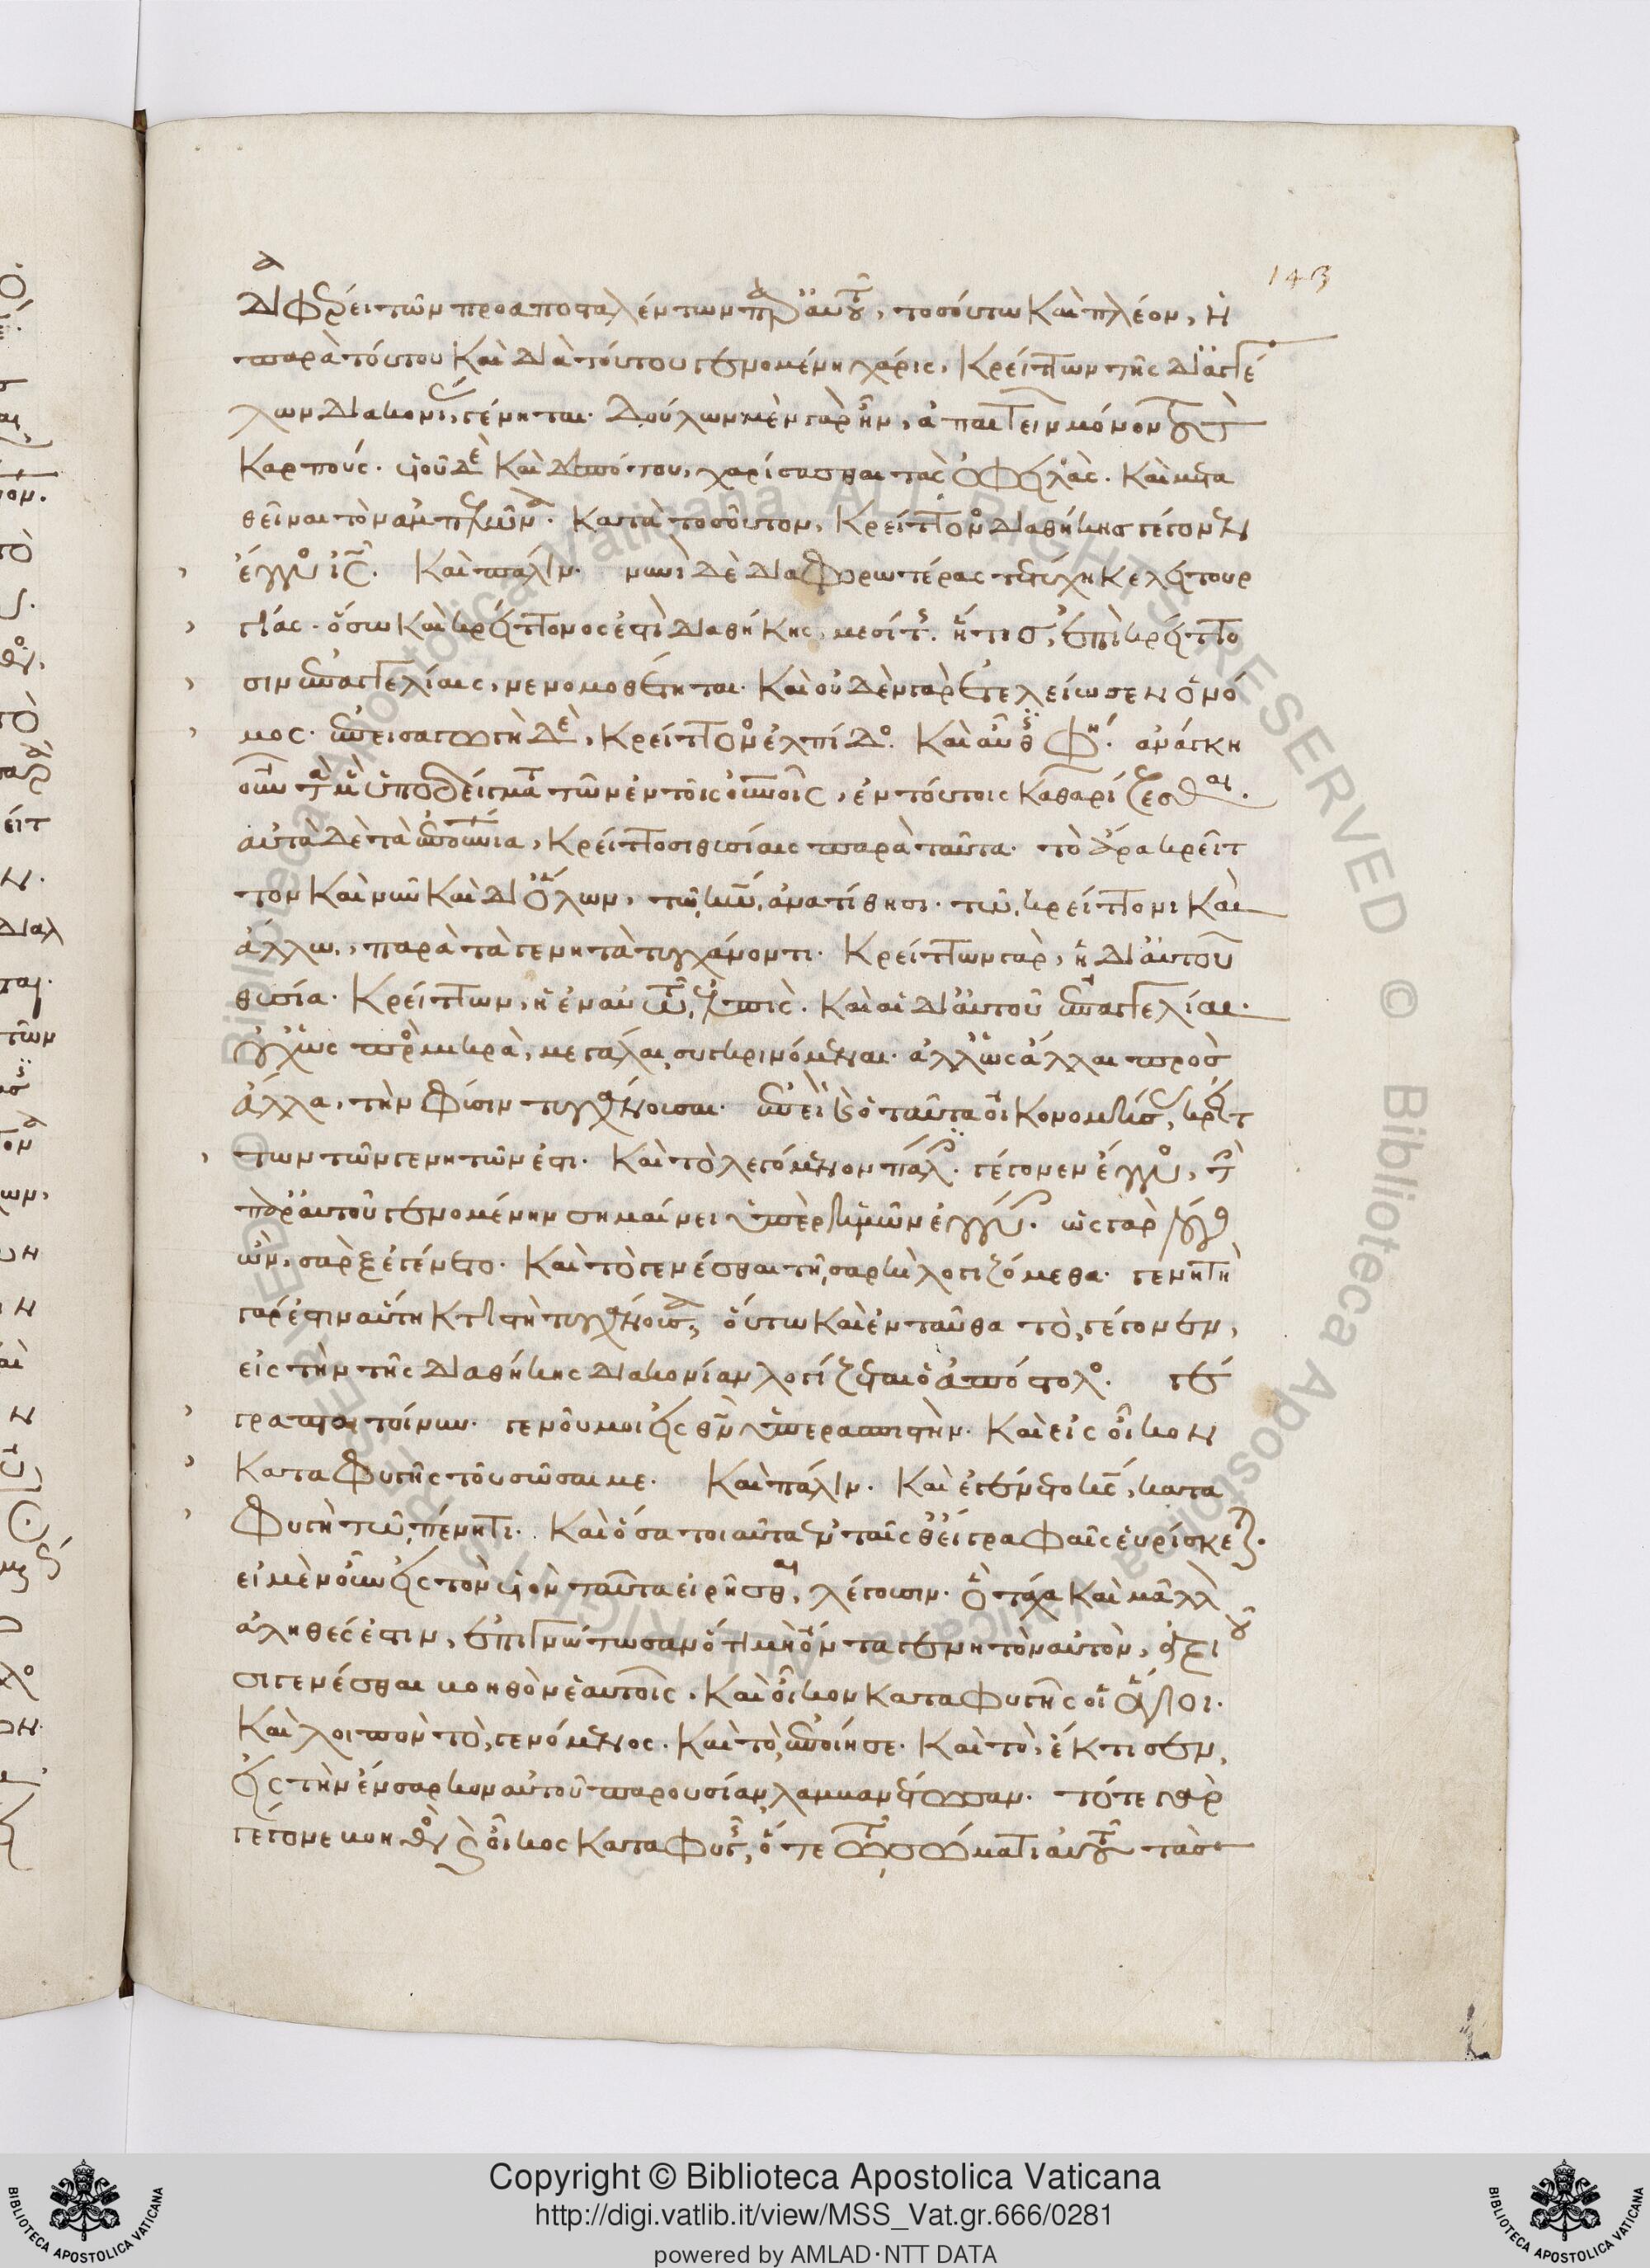 143
διαφέρει τῶν προαποσταλέντων παρ' αὐτοῦ, τοσούτω καὶ πλέον, ἡ
παρὰ τούτου καὶ διὰ τούτου γενομένη χάρις, κρείττων τῆς δι' ἀγγέ
λων διακονίας γένηται. δούλων μὲν γὰρ ἦν, ἀπαιτεῖν μόνον τοὺς
καρπούς. υἱοῦ δὲ καὶ δεσπότου, χαρίσασθαι τὰς ὀφειλάς. καὶ μετα
θεῖναι τὸν ἀμπελῶνα. κατὰ τοσοῦτον, κρείττονος διαθήκης γέγονεν
ἔγγυος ἰς. καὶ πάλιν. νυνὶ δὲ διαφορωτέρας τετύχηκε λειτουρ
γίας. ὅσω καὶ κρείττονος ἐστὶ διαθήκης μεσίτης. ἥτις, ἐπὶ κρείττο
σιν ἐπαγγελίαις, νενομοθέτηται. καὶ οὐδὲν γὰρ ἐτελείωσεν ὁ νό
μος. ἐπεισαγωγὴ δὲ, κρείττονος ἐλπίδος. καὶ αὖθις φησί. ἀνάγκη
οὖν τὰ μὲν ὑποδείγματα τῶν ἐν τοῖς οὐνοῖς, ἐν τούτοις καθαρίζεσθαι.
αὐτὰ δὲ τὰ ἐπουράνια, κρείττοσι θυσίαις παρὰ ταῦτα. τὸ ἄρα κρεῖτ
τον καὶ νῦν καὶ δι' ὅλων, τῶ κω ἀνατίθησι. τῶ κρείττονι καὶ
ἄλλω, παρὰ τὰ γενητὰ τυγχάνοντι. κρείττων γὰρ, ἡ δι' αὐτοῦ
θυσία. κρείττων, ἡ ἐν αὐτῶ ἐλπὶς. καὶ αἱ δι' αὐτοῦ ἐπαγγελίαι.
οὐχ' ὡς πρὸς μικρὰ, μεγάλαι συγκρινόμεναι. ἀλλ' ὡς ἄλλαι πρὸς
ἄλλα, τὴν φύσιν τυγχάνουσαι. ἐπεὶ καὶ ὁ ταῦτα οἰκονομήσας, κρείτ
των τῶν γενητῶν ἐστι. καὶ τὸ λεγόμενον πάλιν. γέγονεν ἔγγυος, τὴν
παρ' αὐτοῦ γενομένην σημαίνει ὑπὲρ ἡμῶν ἐγγύην. ὡς γὰρ λόγος
ὢν, σὰρξ ἐγένετο. καὶ τὸ γενέσθαι τῆ σαρκὶ λογιζόμεθα. γενητὴ
γάρ ἐστιν αὕτη κτιστὴ τυγχάνουσα, οὕτω καὶ ἐνταῦθα τὸ, γέγονεν,
εἰς τὴν τῆς διαθήκης διακονίαν λογίζεται ὁ ἀπόστολος. γέ
γραπται τοίνυν. γενοῦ μοι εἰς θν ὑπερασπιστὴν. καὶ εἰς οἶκον
καταφυγῆς τοῦ σῶσαι με. καὶ πάλιν. καὶ ἐγένετο κς, κατα
φυγὴ τῶ πένητι. καὶ ὅσα τοιαῦτα ἐν ταῖς θείαις γραφαῖς εὑρίσκεται.
εἰ μὲν οὖν εἰς τὸν υἱὸν ταῦτα εἰρῆσθαι, λέγουσιν. ὃ τάχα καὶ μᾶλλον
ἀληθές ἐστιν, ἐπιγνώτωσαν ὅτι μὴ ὄντα γενητὸν αὐτὸν, ἀξιοῦ
σι γενέσθαι βοηθὸν ἑαυτοῖς. καὶ οἶκον καταφυγῆς οἱ ἅγιοι.
καὶ λοιπὸν τὸ, γενόμενος. καὶ τὸ, ἐποίησε. καὶ τὸ, ἔκτισεν,
εἰς τὴν ἔνσαρκον αὐτοῦ παρουσίαν λαμβανέτωσαν. τότε γὰρ
γέγονε βοηθὸς καὶ οἶκος καταφυγῆς, ὅτε τῶ σώματι αὐτοῦ τὰς
Copyright © Biblioteca Apostolica Vaticana
http://digi.vatlib.it/view/MSS_Vat.gr.666/0281
powered by AMLAD·NTT DATA
BIBLIOTECA APOSTOLICA VATICANA
BIBLIOTECA APOSTOLICA VATICANA